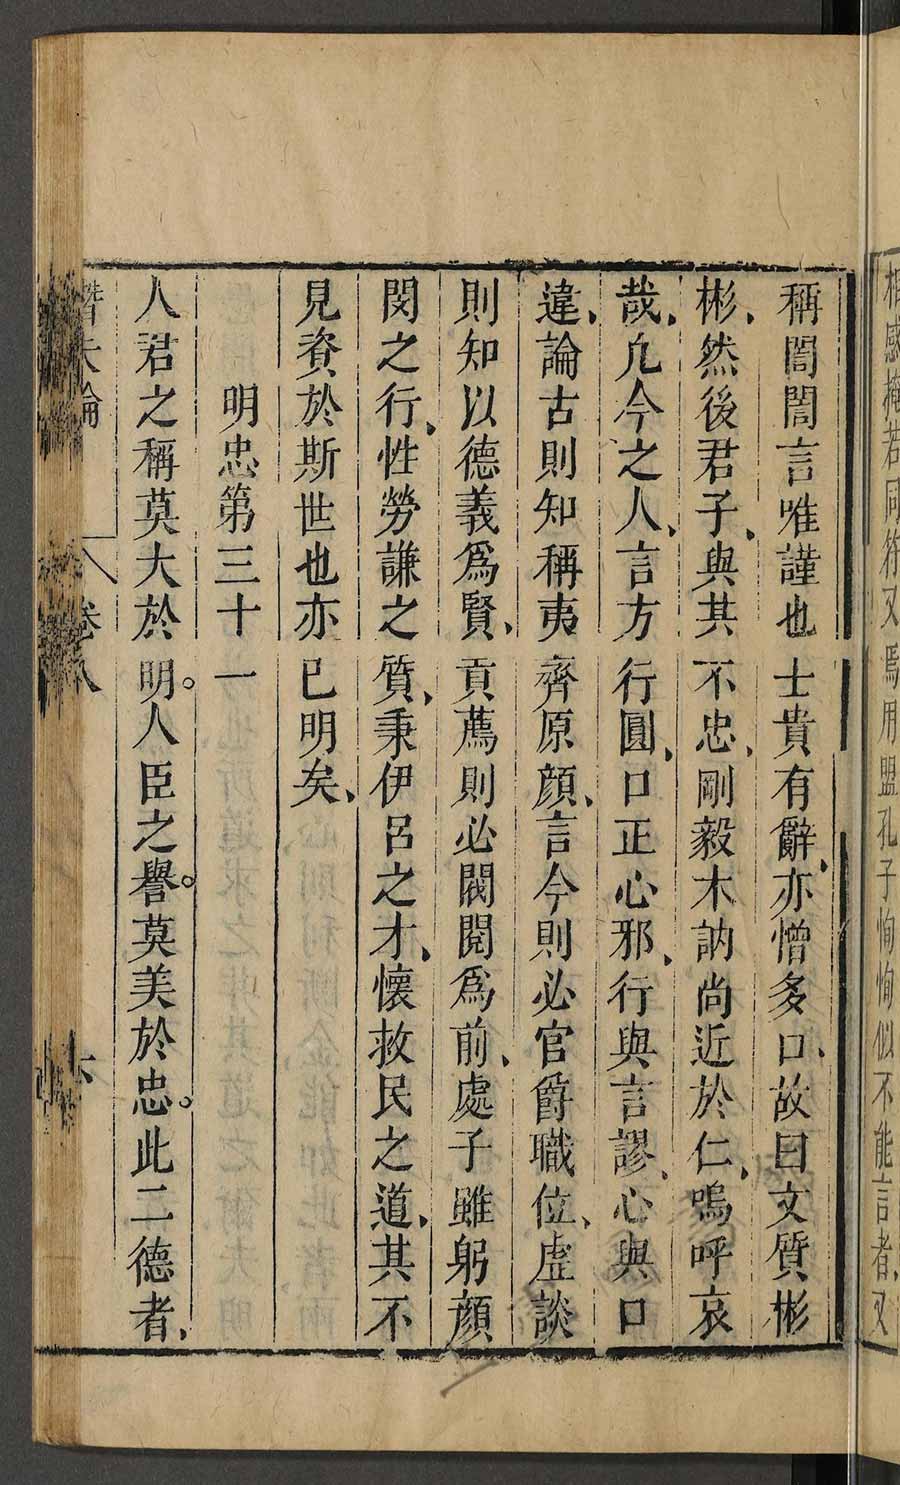 相感掩若同符又焉用盟孔子恂恂似不能言者又
稱誾誾言唯謹也士貴有辭亦憎多口故曰文質彬
彬然後君子與其不忠剛毅木訥尚近於仁嗚呼哀
哉凢今之人言方行圓口正心邪行與言謬心與口
違論古則知稱夷齊原顔言今則必官爵職位虛談
則知以德義爲賢貢薦則必閥閱爲前處子雖躬顔
閔之行性勞謙之質秉伊呂之才懷救民之道其不
見資於斯世也亦已明矣
明忠第三十一
人君之稱莫大於明人臣之譽莫美於忠此二德者
潛夫論 卷八